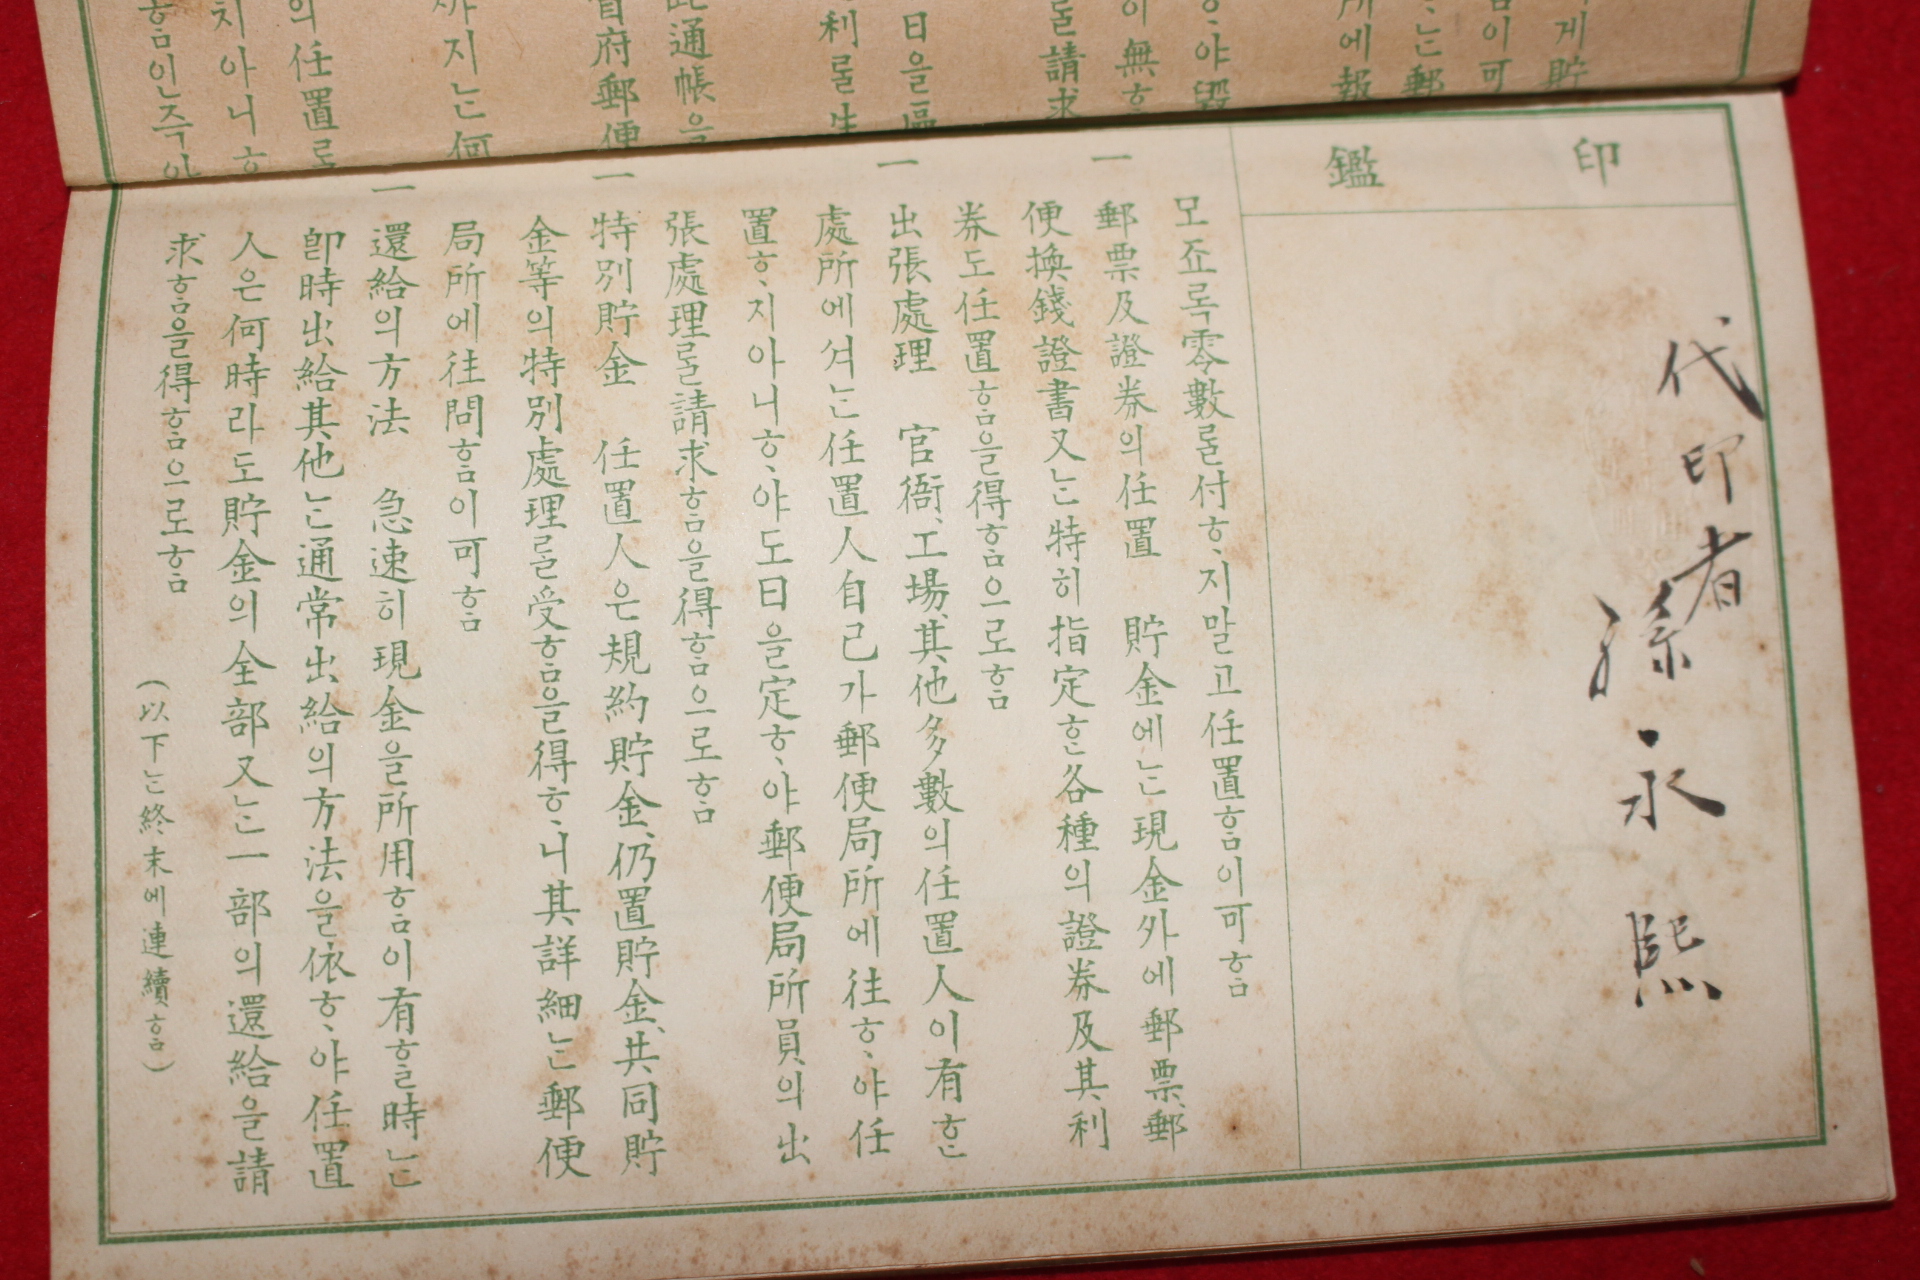 게貯
이可
ᄂᆞᆫ郵
所에報
ᄒᆞ야毀
이無
ᄅᆞᆯ請求
日을區
利ᄅᆞᆯ生
通帳을
府郵便
지ᄂᆞᆫ何
의任置로
치아니
ᄒᆞᆷ인즉
印鑑
代印者 孫永熙
모죠록零數ᄅᆞᆯ付ᄒᆞ지말고任置ᄒᆞᆷ이可ᄒᆞᆷ
一 郵票及證券의任置 貯金에ᄂᆞᆫ現金外에郵票、郵
便換錢證書又ᄂᆞᆫ特히指定ᄒᆞᆫ各種의證券及其利
券도任置ᄒᆞᆷ을得ᄒᆞᆷ으로ᄒᆞᆷ
一 出張處理 官衙、工場、其他多數의任置人이有ᄒᆞᆫ
處所에셔ᄂᆞᆫ任置人自己가郵便局所에往ᄒᆞ야任
置ᄒᆞ지아니ᄒᆞ야도日을定ᄒᆞ야郵便局所員의出
張處理ᄅᆞᆯ請求ᄒᆞᆷ을得ᄒᆞᆷ으로ᄒᆞᆷ
一 特別貯金 任置人은規約貯金、仍置貯金、共同貯
金等의特別處理ᄅᆞᆯ受ᄒᆞᆷ을得ᄒᆞ니其詳細ᄂᆞᆫ郵便
局所에往問ᄒᆞᆷ이可ᄒᆞᆷ
一 還給의方法 急速히現金을所用ᄒᆞᆷ이有ᄒᆞᆯ時ᄂᆞᆫ
卽時出給其他ᄂᆞᆫ通常出給의方法을依ᄒᆞ야任置
人은何時라도貯金의全部又ᄂᆞᆫ一部의還給을請
求ᄒᆞᆷ을得ᄒᆞᆷ으로ᄒᆞᆷ
（以下ᄂᆞᆫ終末에連續ᄒᆞᆷ）